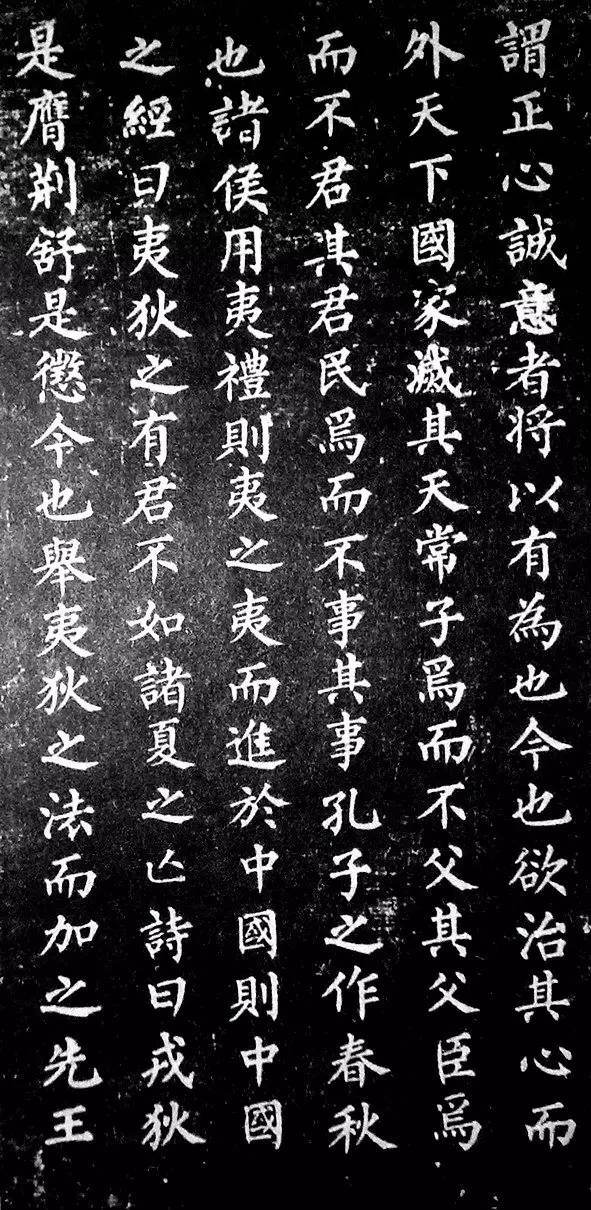 謂正心誠意者将以有為也今也欲治其心而
外天下國家滅其天常子爲而不父其父臣爲
而不君其君民爲而不事其事孔子之作春秋
也諸侯用夷禮則夷之夷而進於中國則中國
之經曰夷狄之有君不如諸夏之亾詩曰戎狄
是膺荆舒是懲今也舉夷狄之法而加之先王